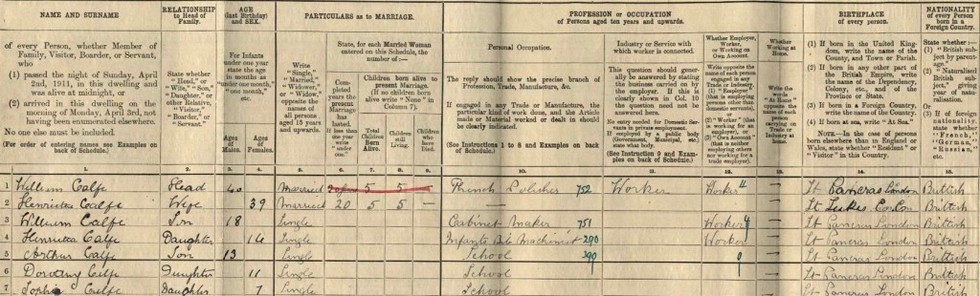 NAME AND SURNAME
RELATIONSHIP to Head of Family.
AGE (last Birthday) and SEX.
PARTICULARS as to MARRIAGE.
PROFESSION or OCCUPATION of Persons aged ten years and upwards.
BIRTHPLACE of every person.
NATIONALITY of every Person born in a Foreign Country.
of every Person, whether Member of
Family, Visitor, Boarder, or Servant,
who
(1) passed the night of Sunday, April
2nd, 1911, in this dwelling and
was alive at midnight, or
(2) arrived in this dwelling on the
morning of Monday, April 3rd, not
having been enumerated elsewhere.
No one else must be included.
(For order of entering names see Examples on
back of Schedule.)
State whether
"Head," or
"Wife," "Son,"
"Daughter," or
other Relative,
"Visitor,"
"Boarder," or
"Servant."
For Infants
under one
year state the
age in months
as "under one
month," "one
month," etc.
Ages of Males.
Ages of Females.
Write
"Single,"
"Married,"
"Widower,"
or "Widow,"
opposite the
names of
all persons
aged 15 years
and upwards.
State, for each Married Woman
entered on this Schedule, the
number of:—
Completed years the present Marriage has lasted.
If less than one year write "under one."
Children born alive to
present Marriage.
(If no children born
alive write "None" in
Column 7).
Total Children Born Alive.
Children still Living.
Children who have Died.
Personal Occupation.
The reply should show the precise branch of
Profession, Trade, Manufacture, &c.
If engaged in any Trade or Manufacture, the
particular kind of work done, and the Article
made or Material worked or dealt in should
be clearly indicated.
(See Instructions 1 to 8 and Examples on back of
Schedule.)
Industry or Service with
which worker is connected.
This question should generally
be answered by stating
the business carried on by
the employer. If this is
clearly shown in Col. 10
the question need not be
answered here.
No entry needed for Domestic Servants
in private employment.
If employed by a public body
(Government, Municipal, etc.)
state what body.
(See Instruction 9 and Examples
on back of Schedule.)
Whether Employer,
Worker,
or Working on
Own Account.
Whether Working at Home.
(1) If born in the United Kingdom,
write the name of the
County, and Town or Parish.
(2) If born in any other part of
the British Empire, write
the name of the Dependency,
Colony, etc., and of the
Province or State.
(3) If born in a Foreign Country,
write the name of the Country.
(4) If born at sea, write "At Sea."
NOTE.—In the case of persons
born elsewhere than in England or
Wales, state whether "Resident" or
"Visitor" in this Country.
1 William Calfe Head 40 Married 5 5 French Polisher 752 Worker Worker St Pancras London British
2 Henrietta Calfe Wife 39 Married 20 5 5 — — St Lukes British
3 William Calfe Son 18 Single Cabinet Maker 751 Worker — St Pancras London British
4 Henrietta Calfe Daughter Single Machinist 290 Worker — St Pancras London British
5 Arthur Calfe Son 13 Single School 390 — St Pancras London British
6 Dorothy Calfe Daughter 11 Single School — St Pancras London British
7 Calfe Daughter 7 Single School — St Pancras London British